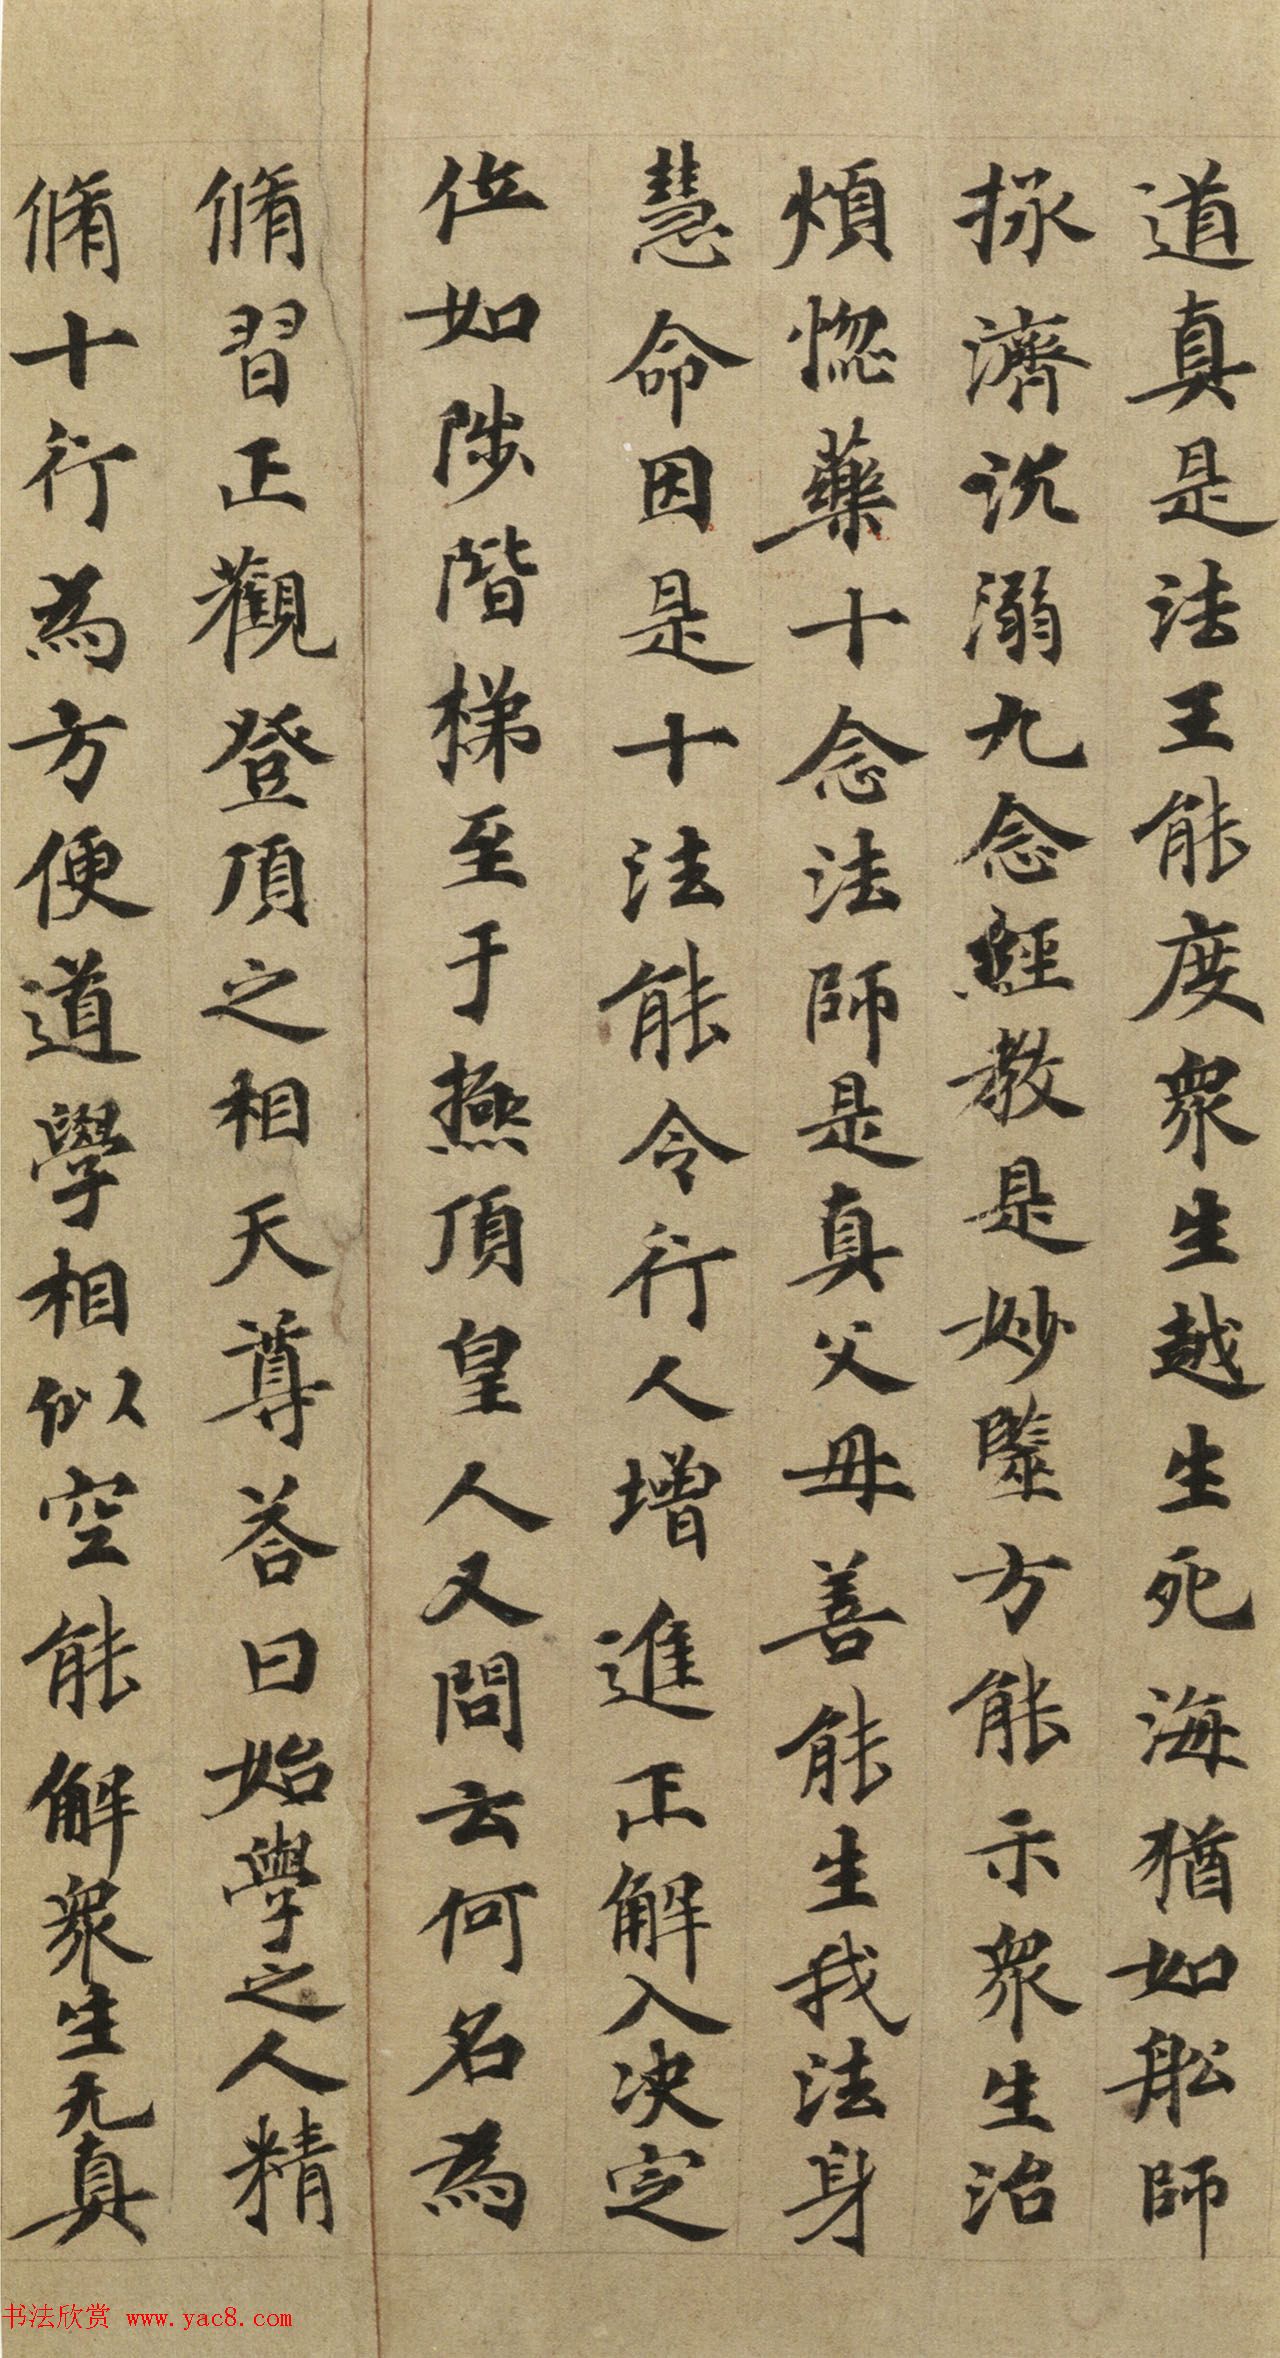 道真是法王能度衆生越生死海猶如舩師
拯濟沉溺九念經教是妙毉方能示衆生治
煩惚藥十念法師是真父母善能生我法身
慧命因是十法能令行人增進正解入决定
位如陟階梯至于㷼頂皇人又問云何名為
脩習正觀登頂之相天尊荅曰始學之人精
脩十行為方便道學相似空能解衆生无真
书法欣赏 www.yac8.com